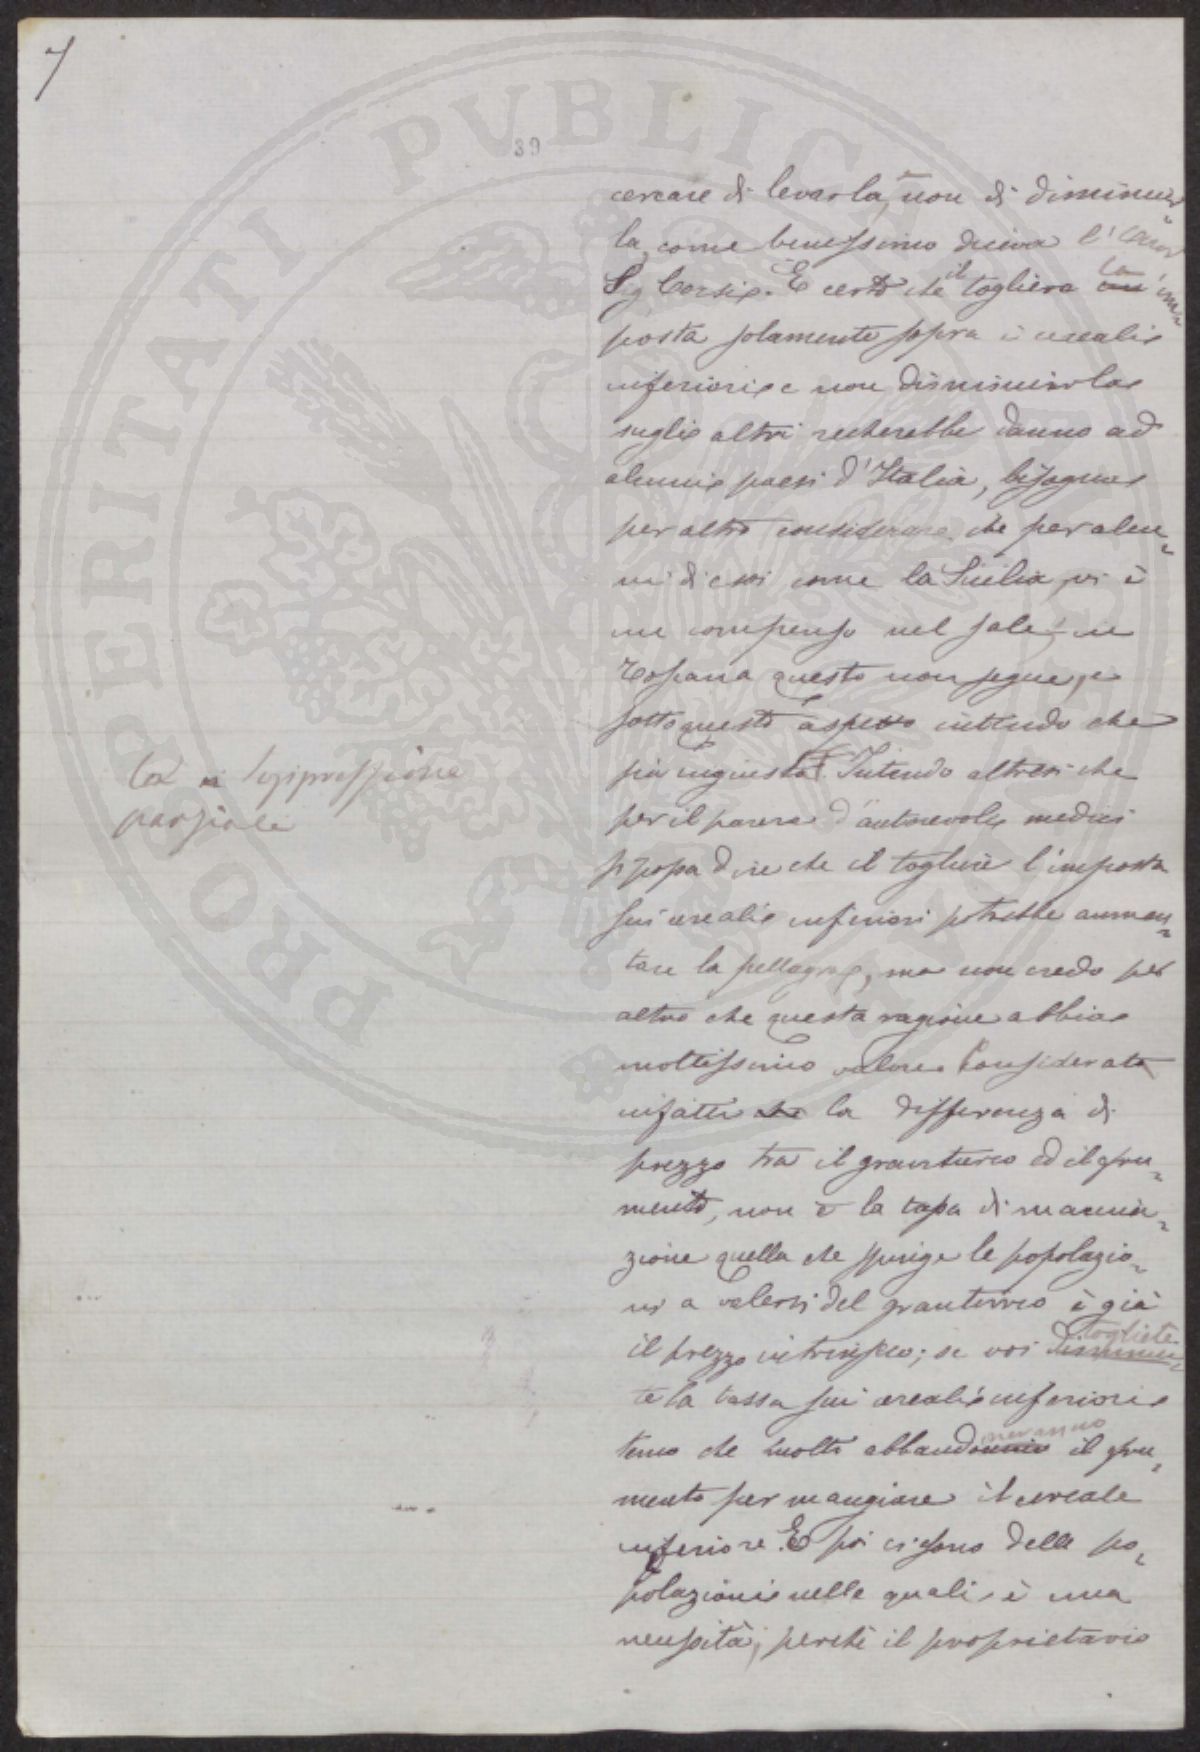 7
39
cercare di levarla, e non di diminuir=
la, come benissimo diceva l'
Sig Corsi. È certo che il togliere la im=
posta solamente sopra i cereali
inferiori e non diminuirla
sugli altri recherebbe danno ad
alcuni paesi d'Italia, bisogna
per altro considerare che per alcu=
ni di essi come la Sicilia, vi è
un compenso nel sale; in
Toscana questo non segue, e
sotto questo aspetto intendo che
più ingiusta. Intendo altresì che
per il parere d'autorevoli medici
si possa dire che il togliere l'imposta
sui cereali inferiori potrebbe aumen=
tare la pellagra, ma non credo per
altro che questa ragione abbia
moltissimo valore. Considerate
infatti che la differenza di
prezzo tra il granturco ed il fru=
mento, non è la tassa di macina=
zione quella che spinge le popolazio=
ni a valersi del granturco è già
il prezzo intrinseco; se voi togliete diminui=
te la tassa sui cereali inferiori
temo che molti abbandoneranno il fru=
mento per mangiare il cereale
inferiore. E poi ci sono delle po=
polazioni nelle quali è una
necessità, perchè il proprietario
soppressione
parziale
PROPERITATI PUBLICAE